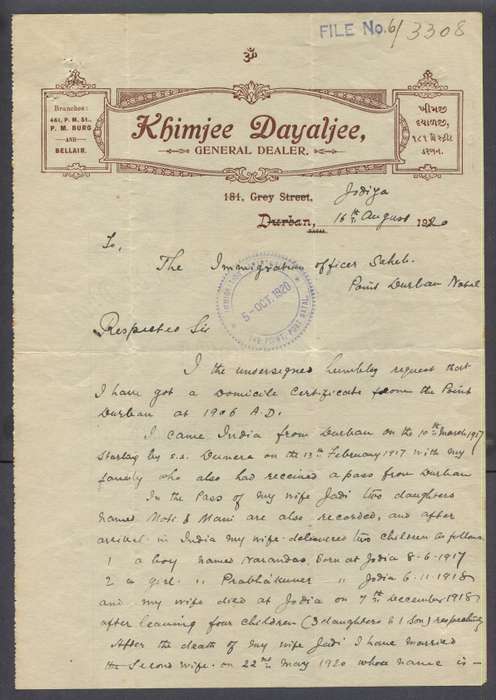 FILE No. 6/3308
ॐ
Branches:
461, P. M. St.,
P. M. BURG
AND
BELLAIR.
Khimjee Dayaljee,
GENERAL DEALER.
ખીમજી
દયાળજી
૧૮૧ ગ્રેસ્ટ્રીટ
ડરબન.
181, Grey Street,
Jodiya
Durban, 16th August 1920
To,
The Immigration officer Saheb.
Point Durban Natal
5-OCT.1920
THE POINT, PORT NATAL
Respected Sir
I the undersigned humbly request that
I have got a Domicile Certificate from the Point
Durban at 1906 A.D.
I came India from Durban on the 10th March 1917
Starting by s.s. Dunera on the 13th February 1917 with my
family who also had received a pass from Durban
In the Pass of my wife Jadi two daughters
named Moti & Mani are also recorded, and after
arrival in India my wife delivered two children as follows
1 a boy named Narandas, born at Jodia 8-6-1917
2 a girl " Prabhakuver " Jodia 6-11-1918
and my wife died at Jodia on 7th December 1918
after leaving four children (3 daughters & 1 son) respectively
After the death of my wife Jadi I have married
the Second wife on 22nd May 1920 whose name is -